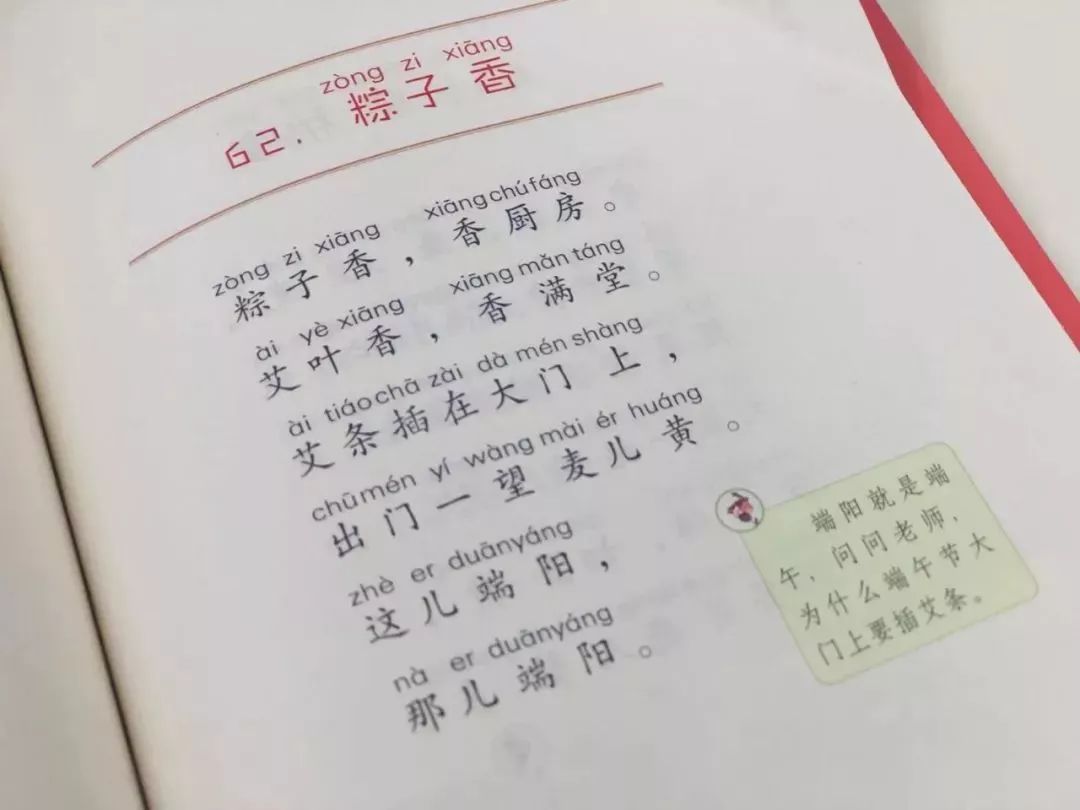 zòng zi xiāng
62. 粽子香
zòng zi xiāng xiāng chú fáng
粽子香，香厨房。
ài yè xiāng xiāng mǎn táng
艾叶香，香满堂。
ài tiáo chā zài dà mén shàng
艾条插在大门上，
chū mén yí wàng mài ér huáng
出门一望麦儿黄。
zhè er duānyáng
这儿端阳，
nà er duānyáng
那儿端阳。
端阳就是端
午，问问老师，
为什么端午节大
门上要插艾条。